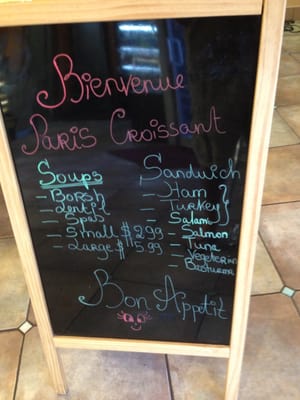 Bienvenue
Paris Croissant
Soups
- Borsh
- Lentil
- Spas
- Small $2.99
- Large $5.99
Sandwich
- Ham
- Turkey
- Salami
- Salmon
- Tuna
- Vegeterian
- Basturma
Bon Appetit